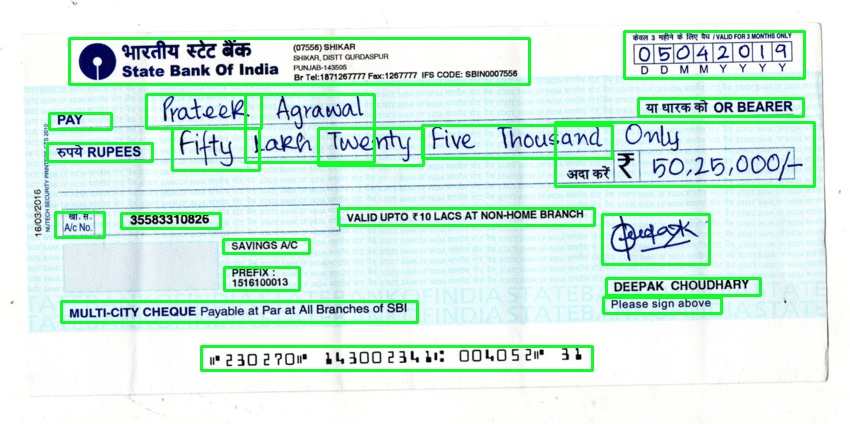 भारतीय स्टेट बैंक
State Bank Of India
(07556) SHIKAR
SHIKAR, DISTT GURDASPUR
PUNJAB-143505
Br Tel:1871267777 Fax:1267777 IFS CODE: SBIN0007556
केवल 3 महीने के लिए वैध / VALID FOR 3 MONTHS ONLY
05042019
D D M M Y Y Y Y
PAY Prateek Agrawal या धारक को OR BEARER
रुपये RUPEES Fifty Lakh Twenty Five Thousand Only
अदा करें ₹ 50,25,000/-
खा. सं.
A/c No.
35583310826
VALID UPTO ₹ 10 LACS AT NON-HOME BRANCH
SAVINGS A/C
PREFIX :
1516100013
DEEPAK CHOUDHARY
Please sign above
MULTI-CITY CHEQUE Payable at Par at All Branches of SBI
⑈230270⑈ 143002341⑆ 004052⑈ 31
16/03/2016